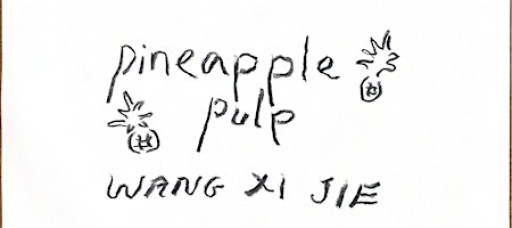 pineapple
pulp
WANG XI JIE